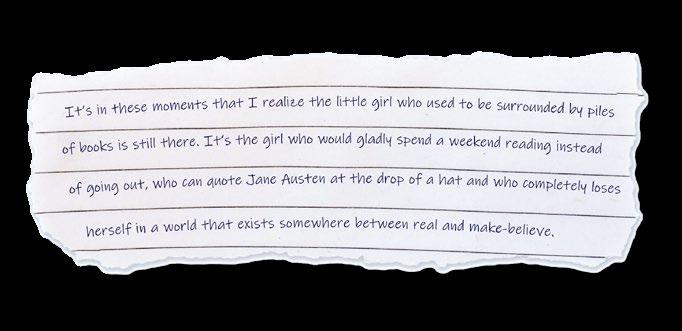 It's in these moments that I realize the little girl who used to be surrounded by piles
of books is still there. It's the girl who would gladly spend a weekend reading instead
of going out, who can quote Jane Austen at the drop of a hat and who completely loses
herself in a world that exists somewhere between real and make-believe.